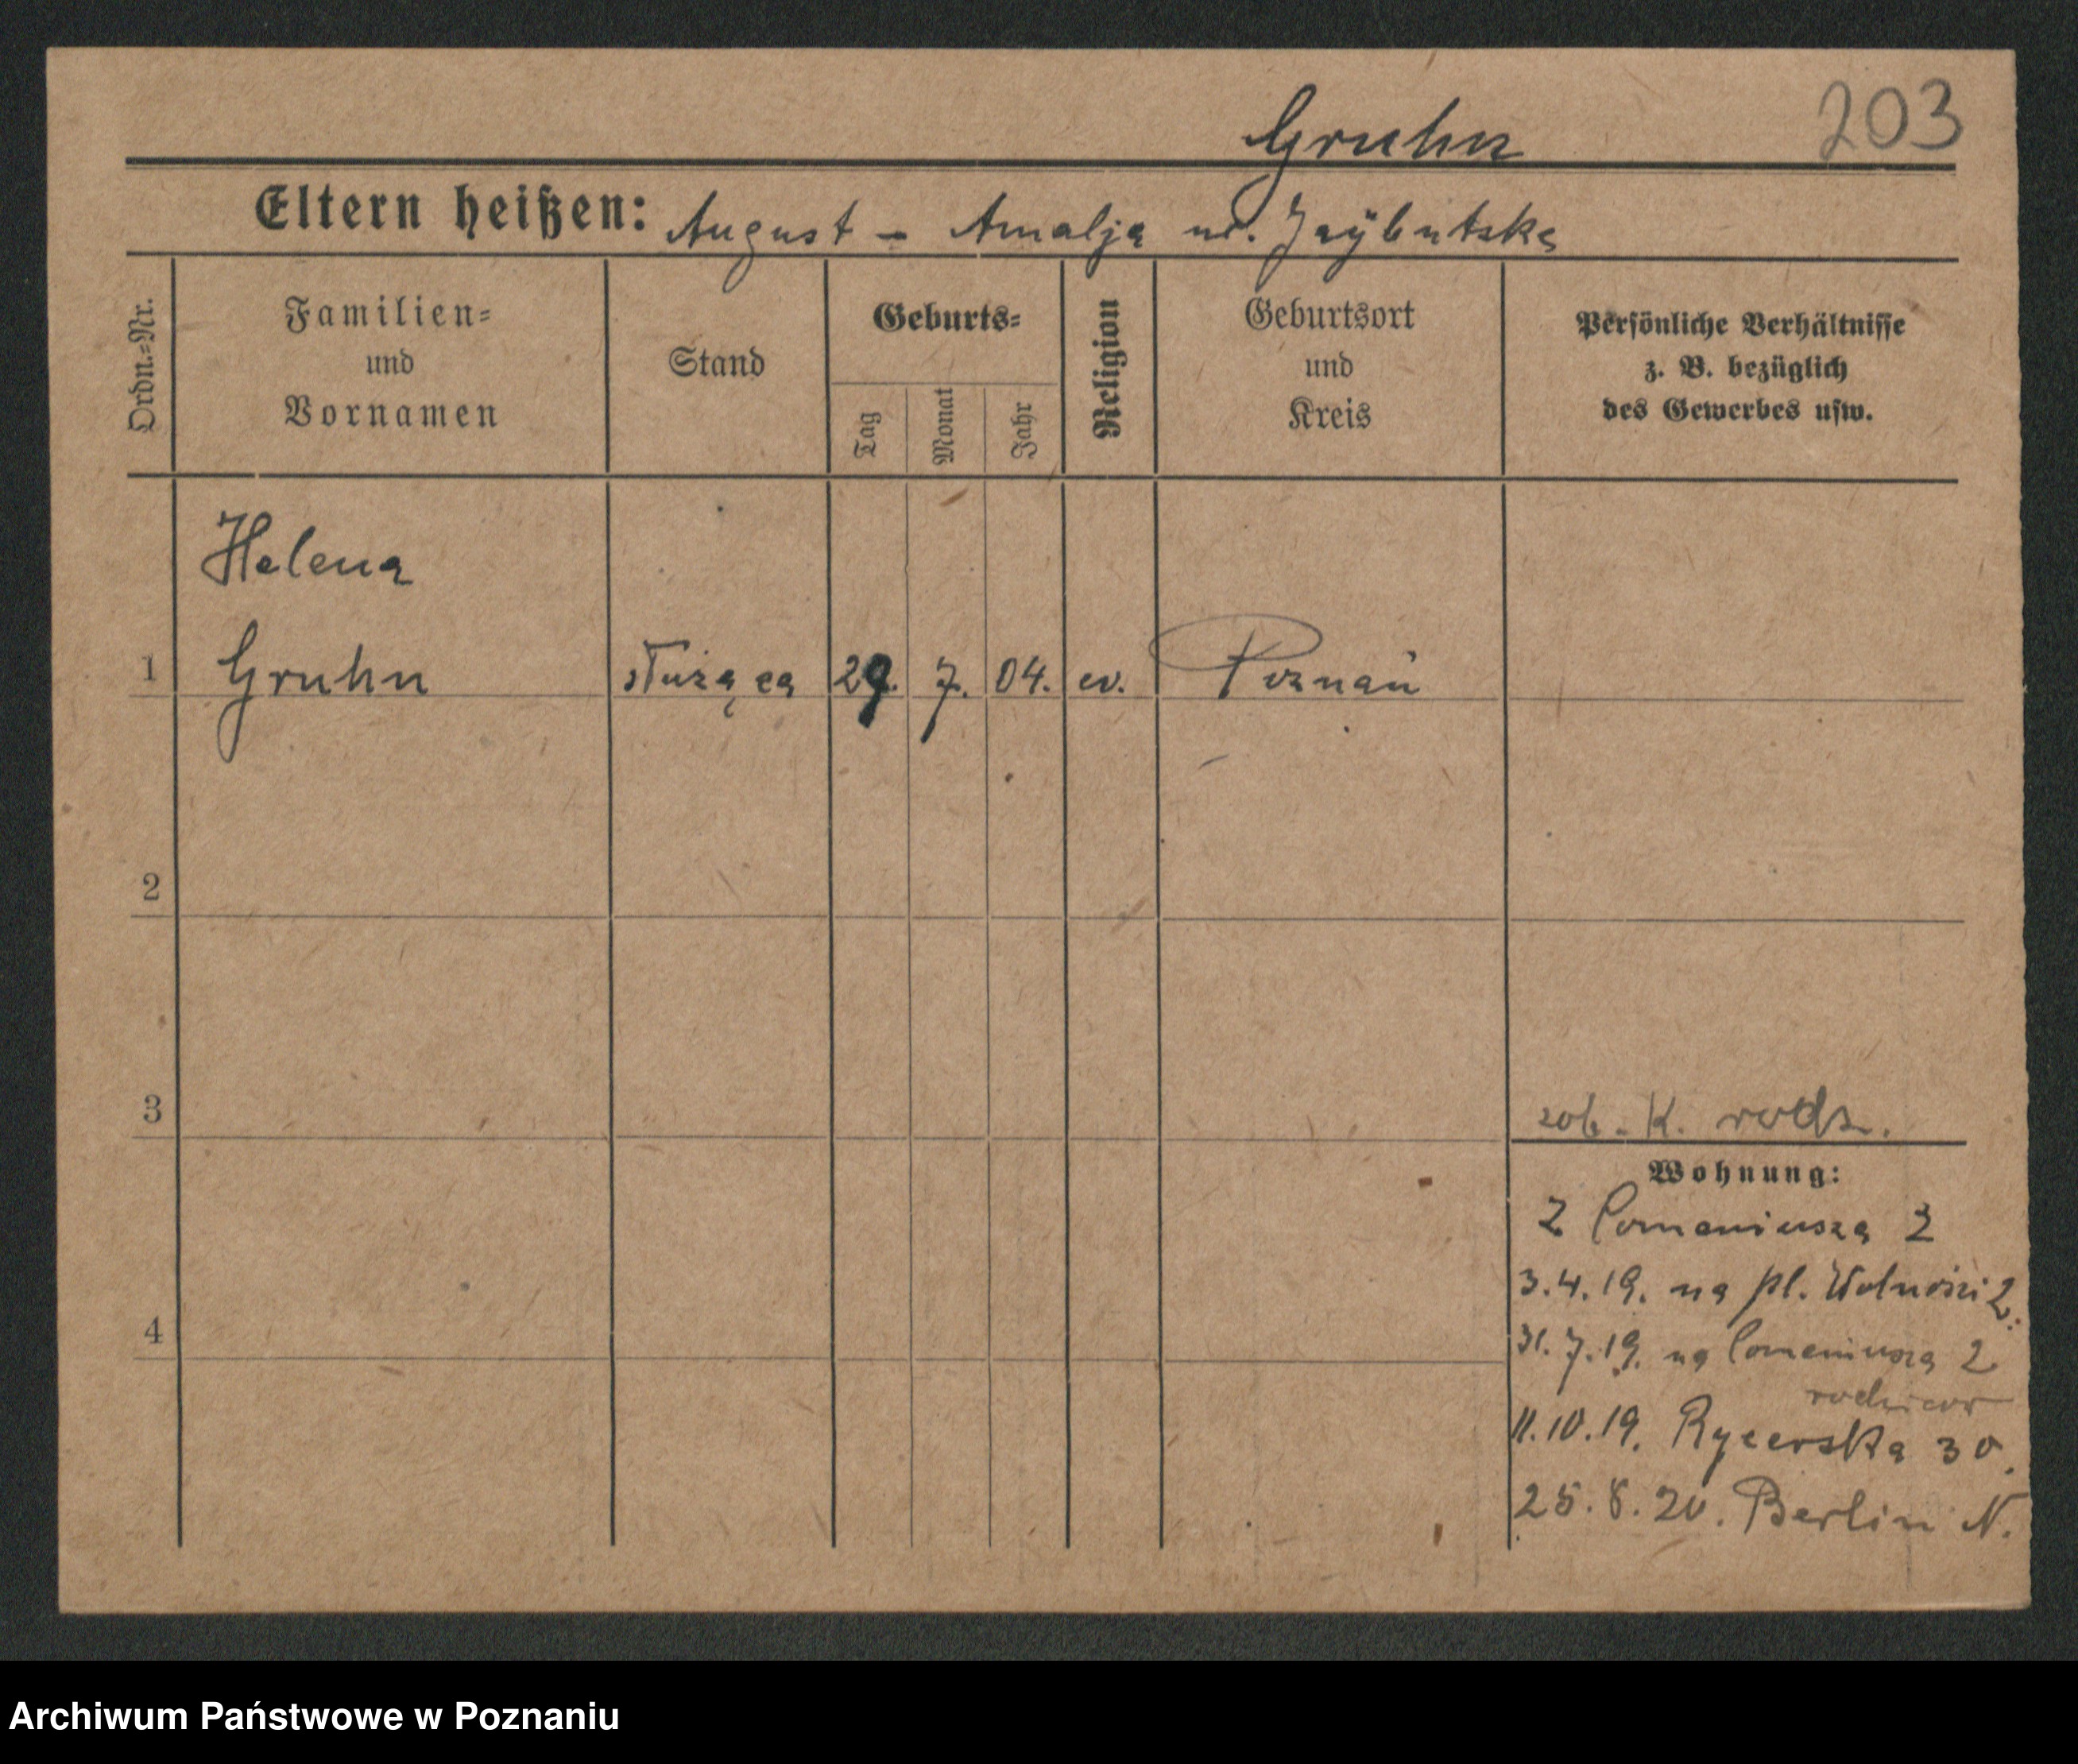 Gruhn 203
Eltern heißen: August – Amalja
Ordn.-Nr.
Familien-
und
Vornamen
Stand
Geburts-
Tag
Monat
Jahr
Religion
Geburtsort
und
Kreis
Persönliche Verhältnisse
z. B. bezüglich
des Gewerbes usw.
Helena
1 Gruhn służąca 29. 7. 04. ev. Poznań
2
3
zob. K. rodz.
Wohnung:
2 Comeniusza 2
3.4.19. na pl. Wolności 2.
4
31.7.19. na Comeniusza 2
11.10.19. Rycerska 30.
25.8.20. Berlin N.
Archiwum Państwowe w Poznaniu